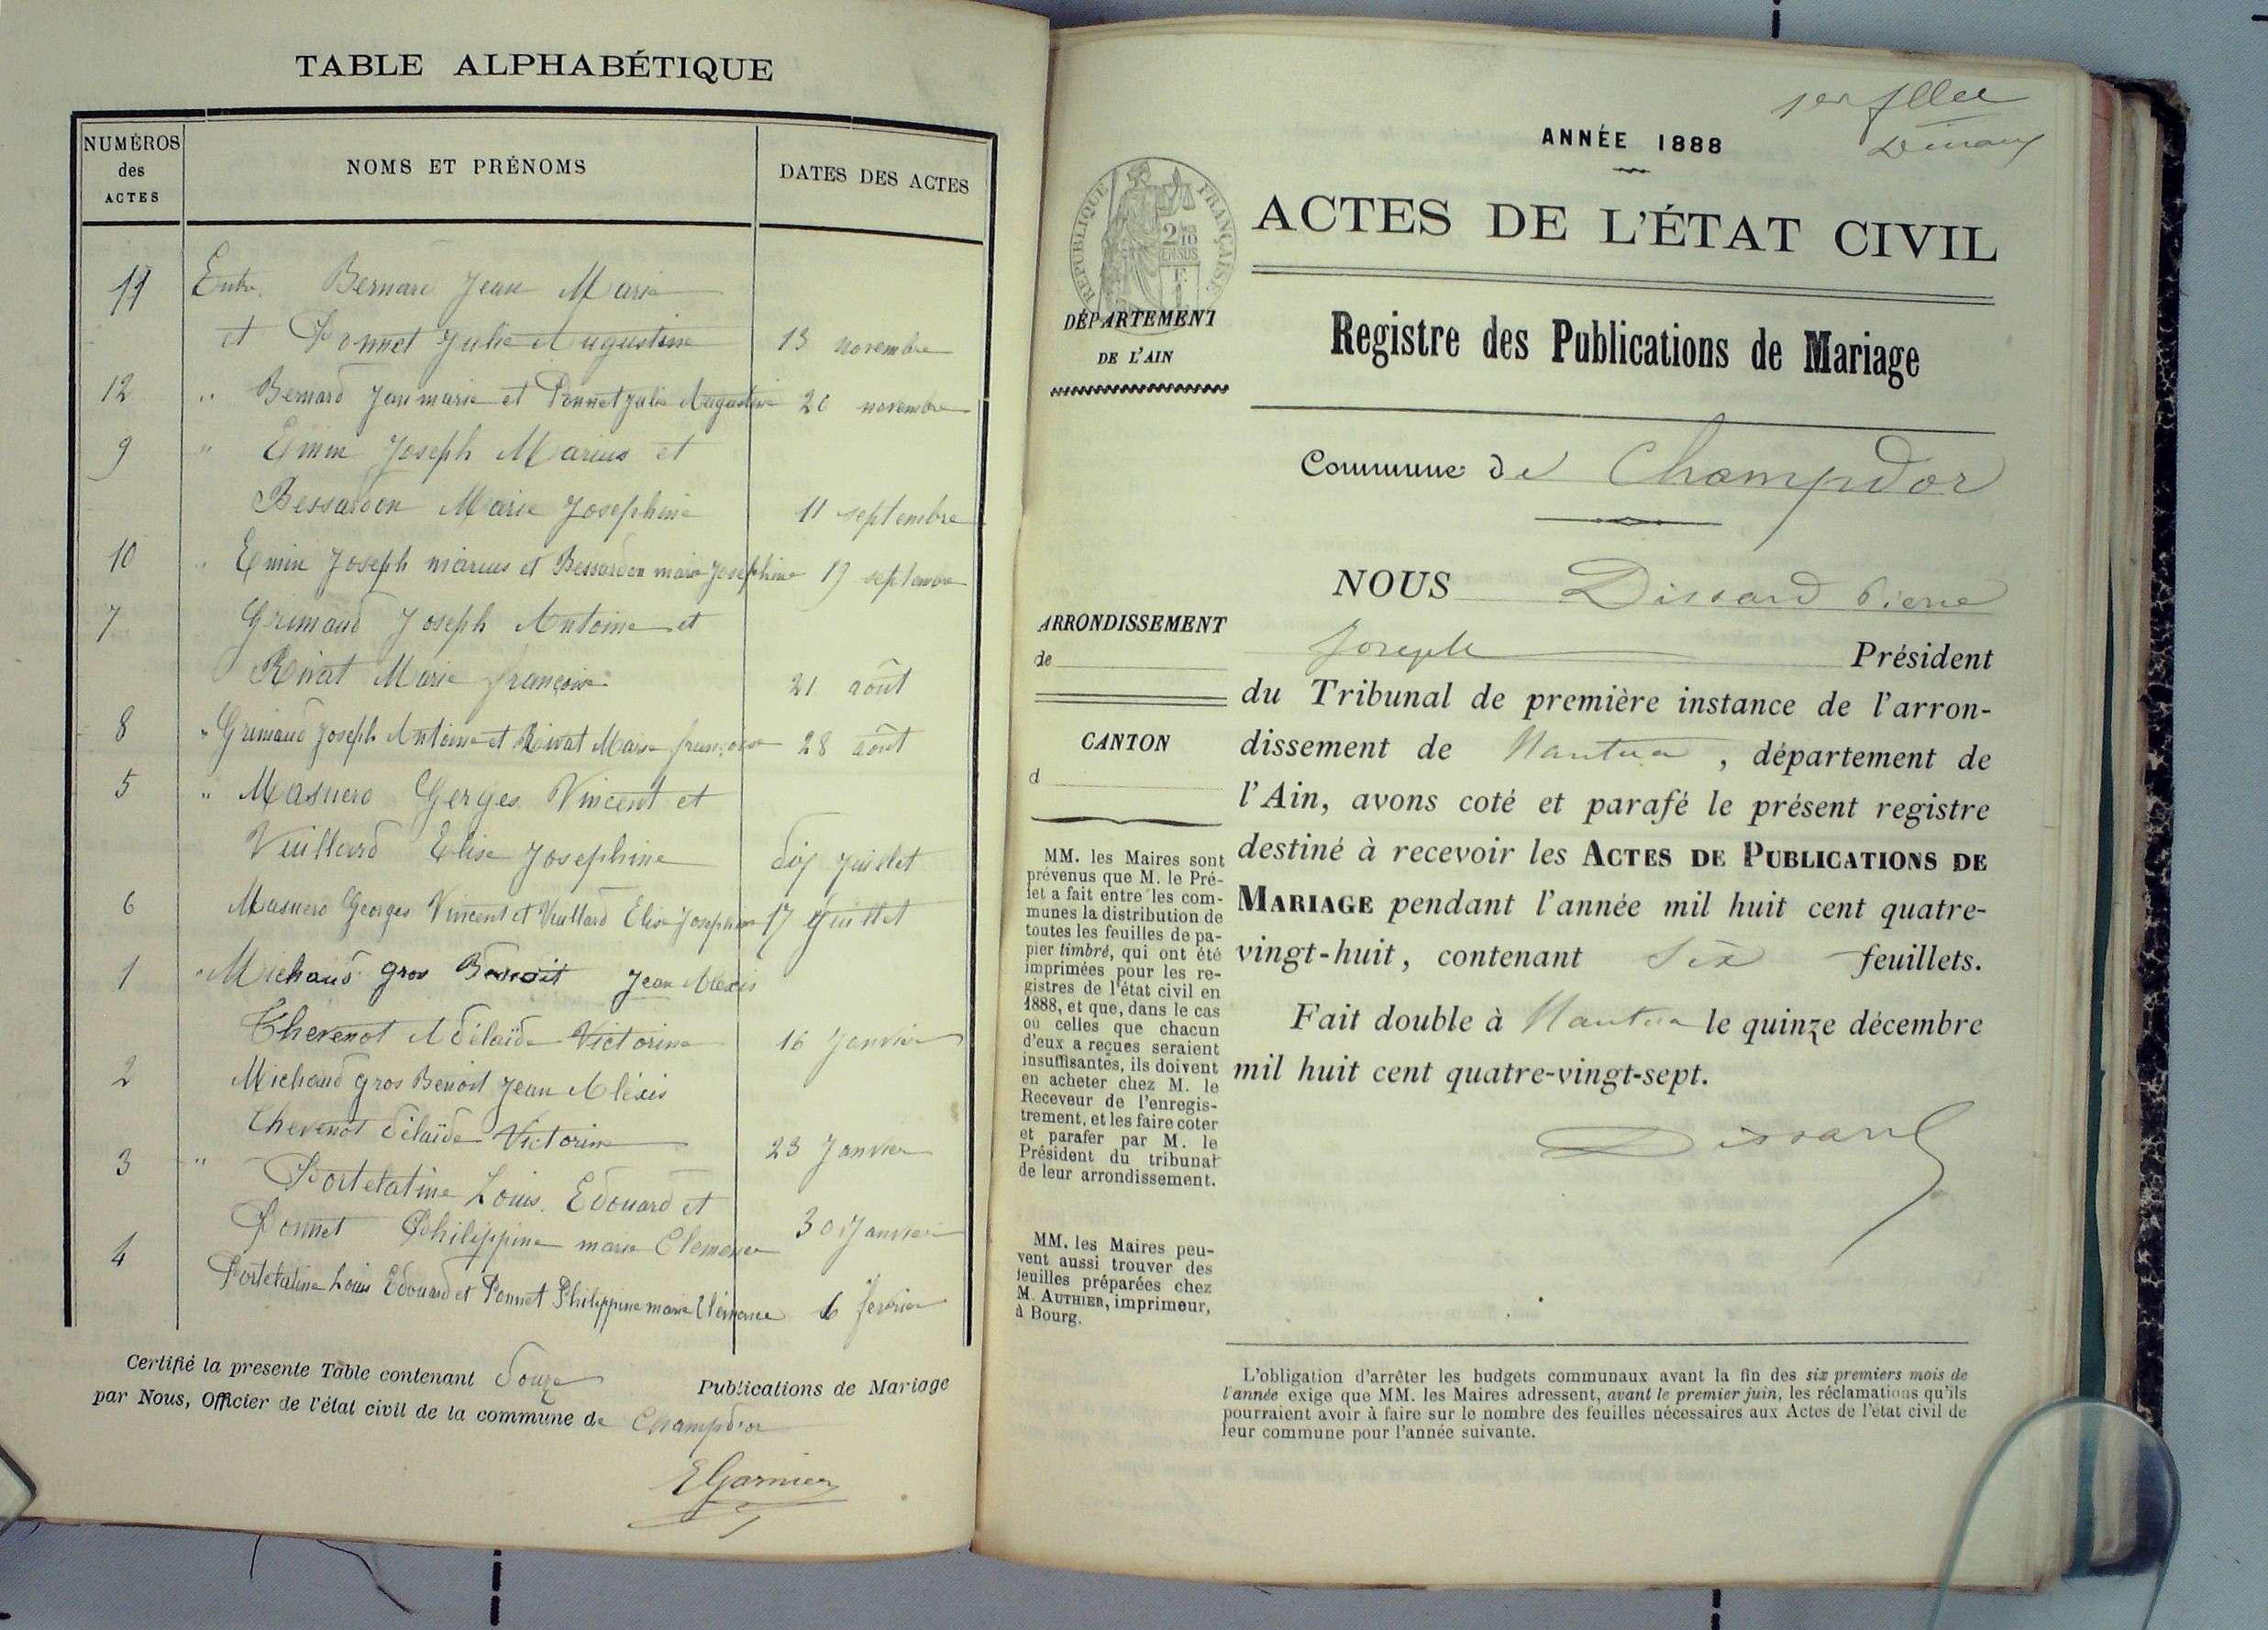 TABLE ALPHABÉTIQUE
NUMÉROS
des
ACTES
NOMS ET PRÉNOMS
DATES DES ACTES
11 Entre Bernard Jean Marie
et Ponnet Julie Augustine 13 novembre
12 " Bernard Jean marie et Ponnet Julie Augustine 20 novembre
9 " Emin Joseph Marius et
Bessardon Marie Josephine 11 septembre
10 " Emin Joseph marius et Bessardon marie Josephine 19 septembre
7 Grimaud Joseph Antoine et
Rivat Marie françoise 21 août
8 " Grimaud Joseph Antoine et Rivat Marie françoise 28 août
5 " Masnero Gerges Vincent et
Vuillard Elise Josephine dix Juillet
6 Masnero Georges Vincent et Vuillard Elise Josephine 17 Juillet
1 " Michaud gros Benoit Jean Alexis
Thevenot Adélaïde Victorine 16 Janvier
2 Michaud gros Benoit Jean Aléxis
Thevenot délaïde Victorine 23 Janvier
3 " Portetatine Louis Edouard et
Ponnet Philippine marie Clemence 30 Janvier
4 Portetatine Louis Edouard et Ponnet Philippine marie Clémence 6 fevrier
Certifié la presente Table contenant douze Publications de Mariage
par Nous, Officier de l'état civil de la commune de Champdor
EGarnier
1er fllet
ANNÉE 1888
RÉPUBLIQUE FRANÇAISE
ACTES DE L'ÉTAT CIVIL
DÉPARTEMENT
DE L'AIN
Registre des Publications de Mariage
Commune de Champdor
NOUS Dissard Pierre
Joseph Président
du Tribunal de première instance de l'arron-
dissement de Nantua, département de
l'Ain, avons coté et parafé le présent registre
destiné à recevoir les ACTES DE PUBLICATIONS DE
MARIAGE pendant l'année mil huit cent quatre-
vingt-huit, contenant Six feuillets.
Fait double à Nantua le quinze décembre
mil huit cent quatre-vingt-sept.
Dissard
ARRONDISSEMENT
de
CANTON
d
MM. les Maires sont
prévenus que M. le Pré-
fet a fait entre les com-
munes la distribution de
toutes les feuilles de pa-
pier timbré, qui ont été
imprimées pour les re-
gistres de l'état civil en
1888, et que, dans le cas
où celles que chacun
d'eux a reçues seraient
insuffisantes, ils doivent
en acheter chez M. le
Receveur de l'enregis-
trement, et les faire coter
et parafer par M. le
Président du tribunal
de leur arrondissement.
MM. les Maires peu-
vent aussi trouver des
feuilles préparées chez
M. AUTHIER, imprimeur,
à Bourg.
L'obligation d'arrêter les budgets communaux avant la fin des six premiers mois de
l'année exige que MM. les Maires adressent, avant le premier juin, les réclamations qu'ils
pourraient avoir à faire sur le nombre des feuilles nécessaires aux Actes de l'état civil de
leur commune pour l'année suivante.